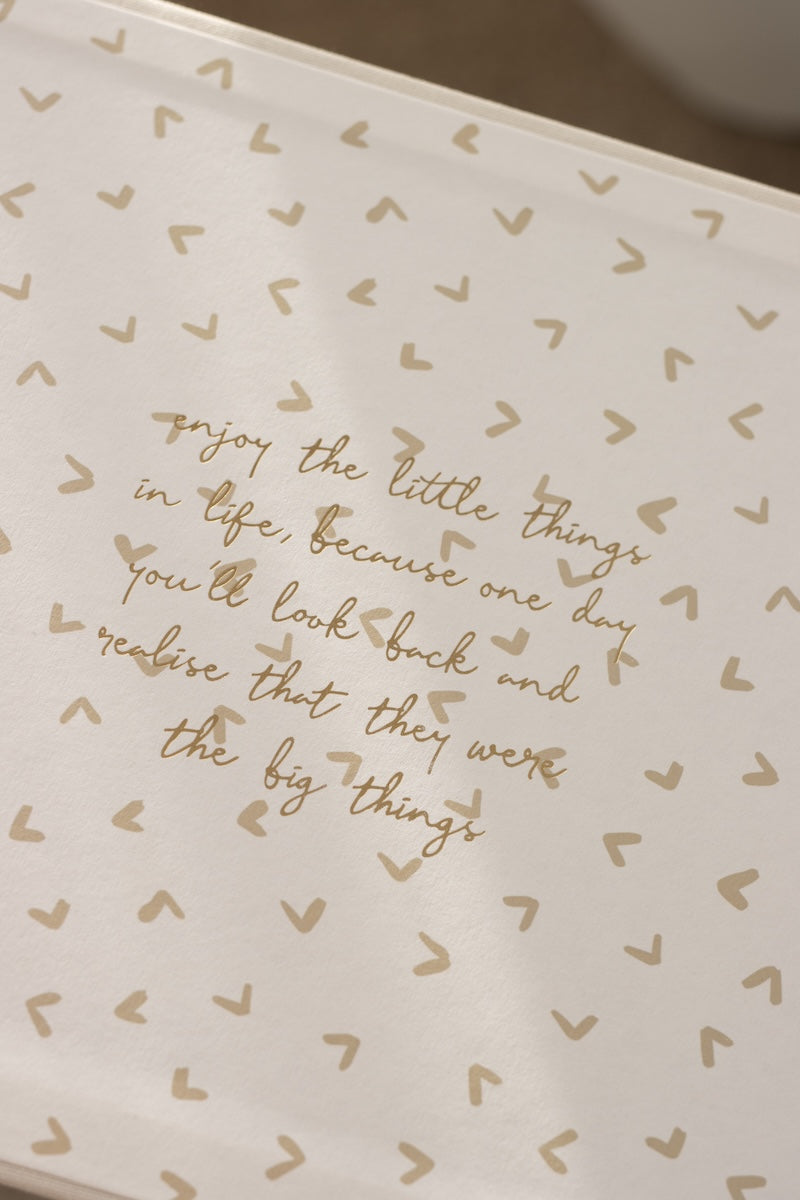 enjoy the little things
in life, because one day
you'll look back and
realise that they were
the big things